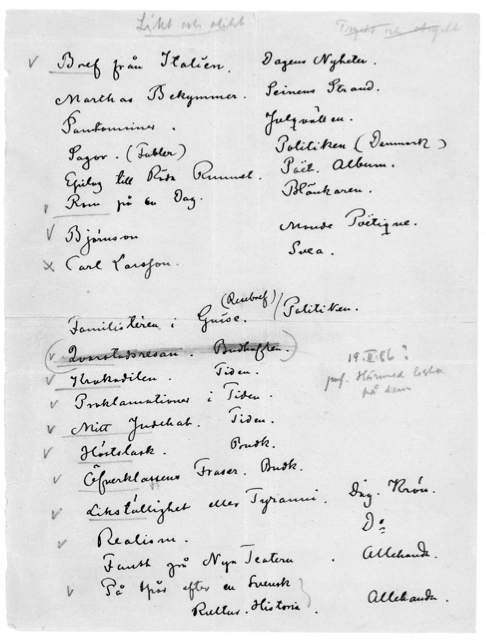 Likt och olikt
Tryckt och otryckt
Bref från Italien. Dagens Nyheter.
Marthas Bekymmer. Seinens Strand.
Pantominer. Julqvällen.
Sagor. (Fabler) Politiken (Denmark)
Epilog till Röda Rummet. Poët. Album.
Rom på en Dag. Blånkaren.
Björnson Monde Poëtique.
Carl Larsson. Svea.
Familistèren i Guise. (Resebref) / Politiken.
Qvarstadsresan. Budkaflen.
Krokodilen. Tiden.
Proklamationer i Tiden.
Mitt Judehat. Tiden.
Höstslask. Budk.
Öfverklassens Fraser. Budk.
Likställighet eller Tyranni. Dag. Krön.
Realism. Do
Faust på Nya Teatern. Allehanda.
På spår efter en Svensk
Kultur-Historia. Allehanda.
19. 86?
på dem